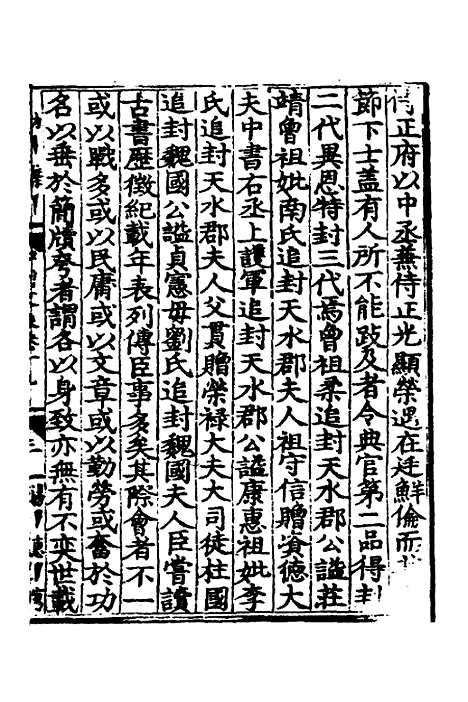 正府以中丞兼侍正光顯榮遇在廷鮮倫而
節下士蓋有人所不能跂及者令典官第二品得封
二代異恩特封三代焉曾祖柔追封天水郡公謚莊
靖曾祖妣南氏追封天水郡夫人祖守信贈資德大
夫中書右丞上護軍追封天水郡公謚康惠祖妣李
氏追封天水郡夫人父貫贈榮祿大夫大司徒柱國
追封魏國公謚貞憲毋劉氏追封魏國夫人臣嘗讀
古書歷徵紀載年表列傳臣事多矣其際會者不一
或以戰多或以民庸或以文章或以勤勞或奮於功
名以垂於簡牘夸者謂各以身致亦無有不奕世載